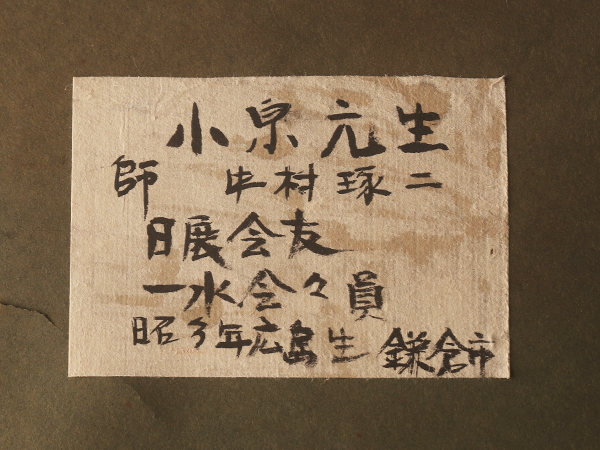 小泉元生
師 中村琢二
日展会友
一水会々員
昭 年広島生 鎌倉市